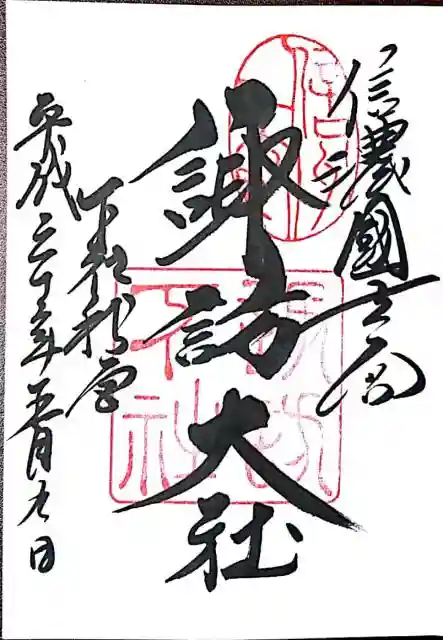 信濃國一之宮
諏訪大社
下社秋宮
平成三十年五月九日
諏訪下社